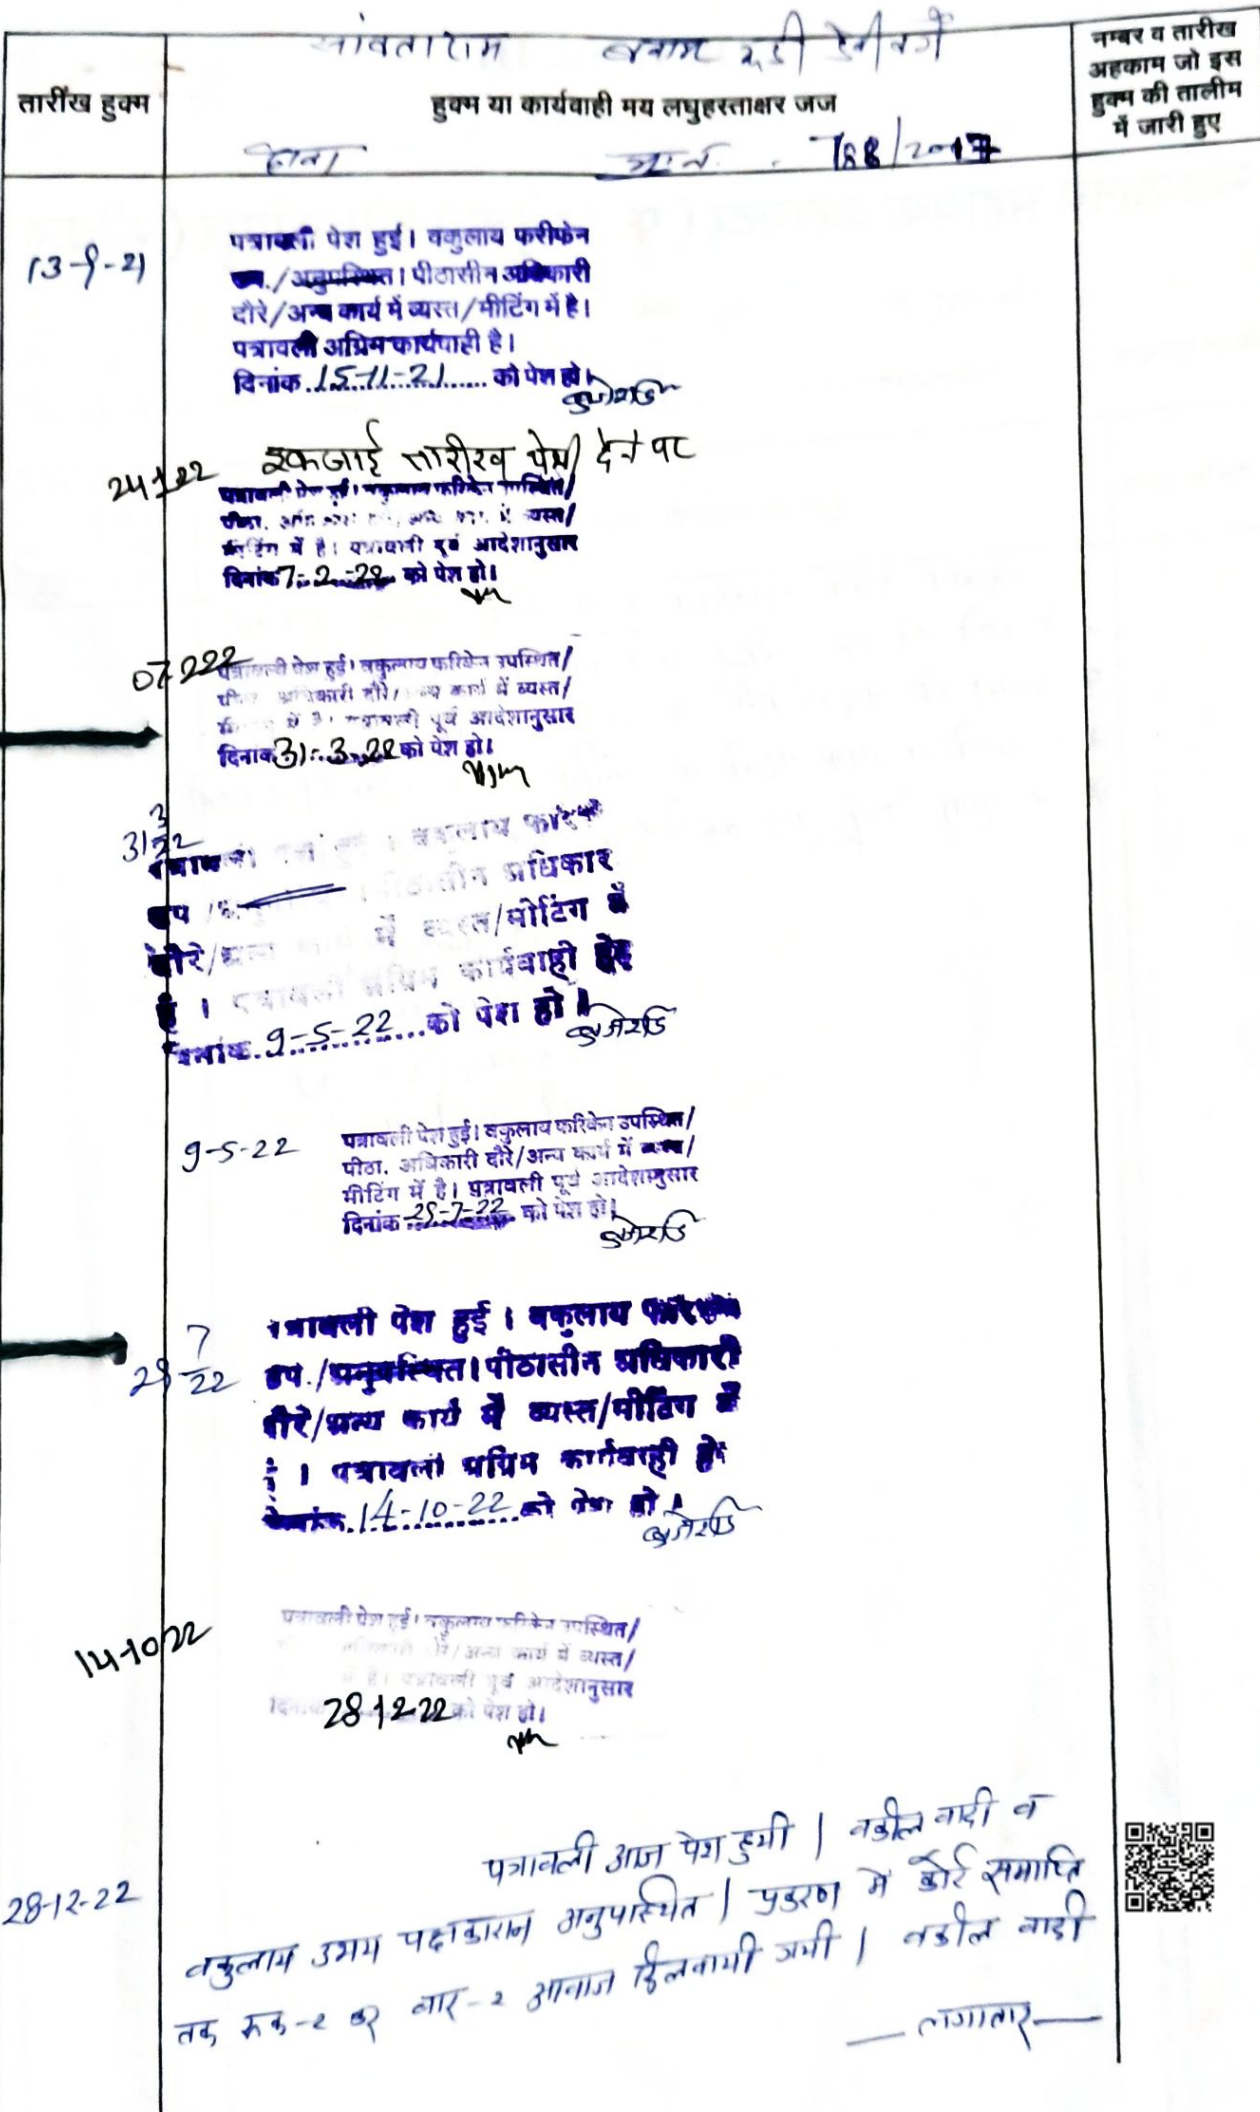 सांवताराम बनाम
तारींख हुक्म
हुक्म या कार्यवाही मय लघुहस्ताक्षर जज
नम्बर व तारीख
अहकाम जो इस
हुक्म की तालीम
में जारी हुए
788/2017
13-9-21
पत्रावली पेश हुई। वकुलाय फरीकेन
उप./अनुपस्थित। पीठासीन अधिकारी
दौरे/अन्य कार्य में व्यस्त/मीटिंग में है।
पत्रावली अग्रिम कार्यवाही है।
दिनांक 15-11-21 को पेश हो।
इकजाई तारीख पेशी देने पर
24-1-22
पत्रावली पेश हुई। वकुलाय फरिकेन उपस्थित/
पीठा. व्यस्त/
मीटिंग में है। पत्रावली पूर्व आदेशानुसार
दिनांक 7-2-22 को पेश हो।
07-2-22
पत्रावली पेश हुई। वकुलाय फरिकेन उपस्थित/
अधिकारी दौरे/अन्य कार्य में व्यस्त/
में है। पत्रावली पूर्व आदेशानुसार
दिनांक 31-3-22 को पेश हो।
31/3/22
पत्रावली हुई । वकुलाय
उप पीठासीन अधिकार
दौरे/अन्य में व्यस्त/मीटिंग में
है । पत्रावली अग्रिम कार्यवाही हेतु
9-5-22 को पेश हो ।
9-5-22
पत्रावली पेश हुई। वकुलाय फरिकेन उपस्थित/
पीठा. अधिकारी दौरे/अन्य कार्य में व्यस्त/
मीटिंग में है। पत्रावली पूर्व आदेशानुसार
दिनांक 29-7-22 को पेश हो।
29/7/22
पत्रावली पेश हुई । वकुलाय
उप./अनुपस्थित। पीठासीन अधिकारी
दौरे/अन्य कार्य में व्यस्त/मीटिंग में
। पत्रावली अग्रिम कार्यवाही हेतु
14-10-22 को पेश हो ।
14-10-22
पत्रावली पेश हुई। वकुलाय फरिकेन उपस्थित/
दौरे/अन्य कार्य में व्यस्त/
में है। पत्रावली पूर्व आदेशानुसार
दिनांक 28-12-22 को पेश हो।
28-12-22
पत्रावली आज पेश हुयी | वकील वादी व
वकुलाय उभय पक्षकारान अनुपस्थित | प्रकरण में कोर्ट समाप्ति
तक रूक-२ कर बार-२ आवाज दिलवायी गयी | वकील वादी
— लगातार —